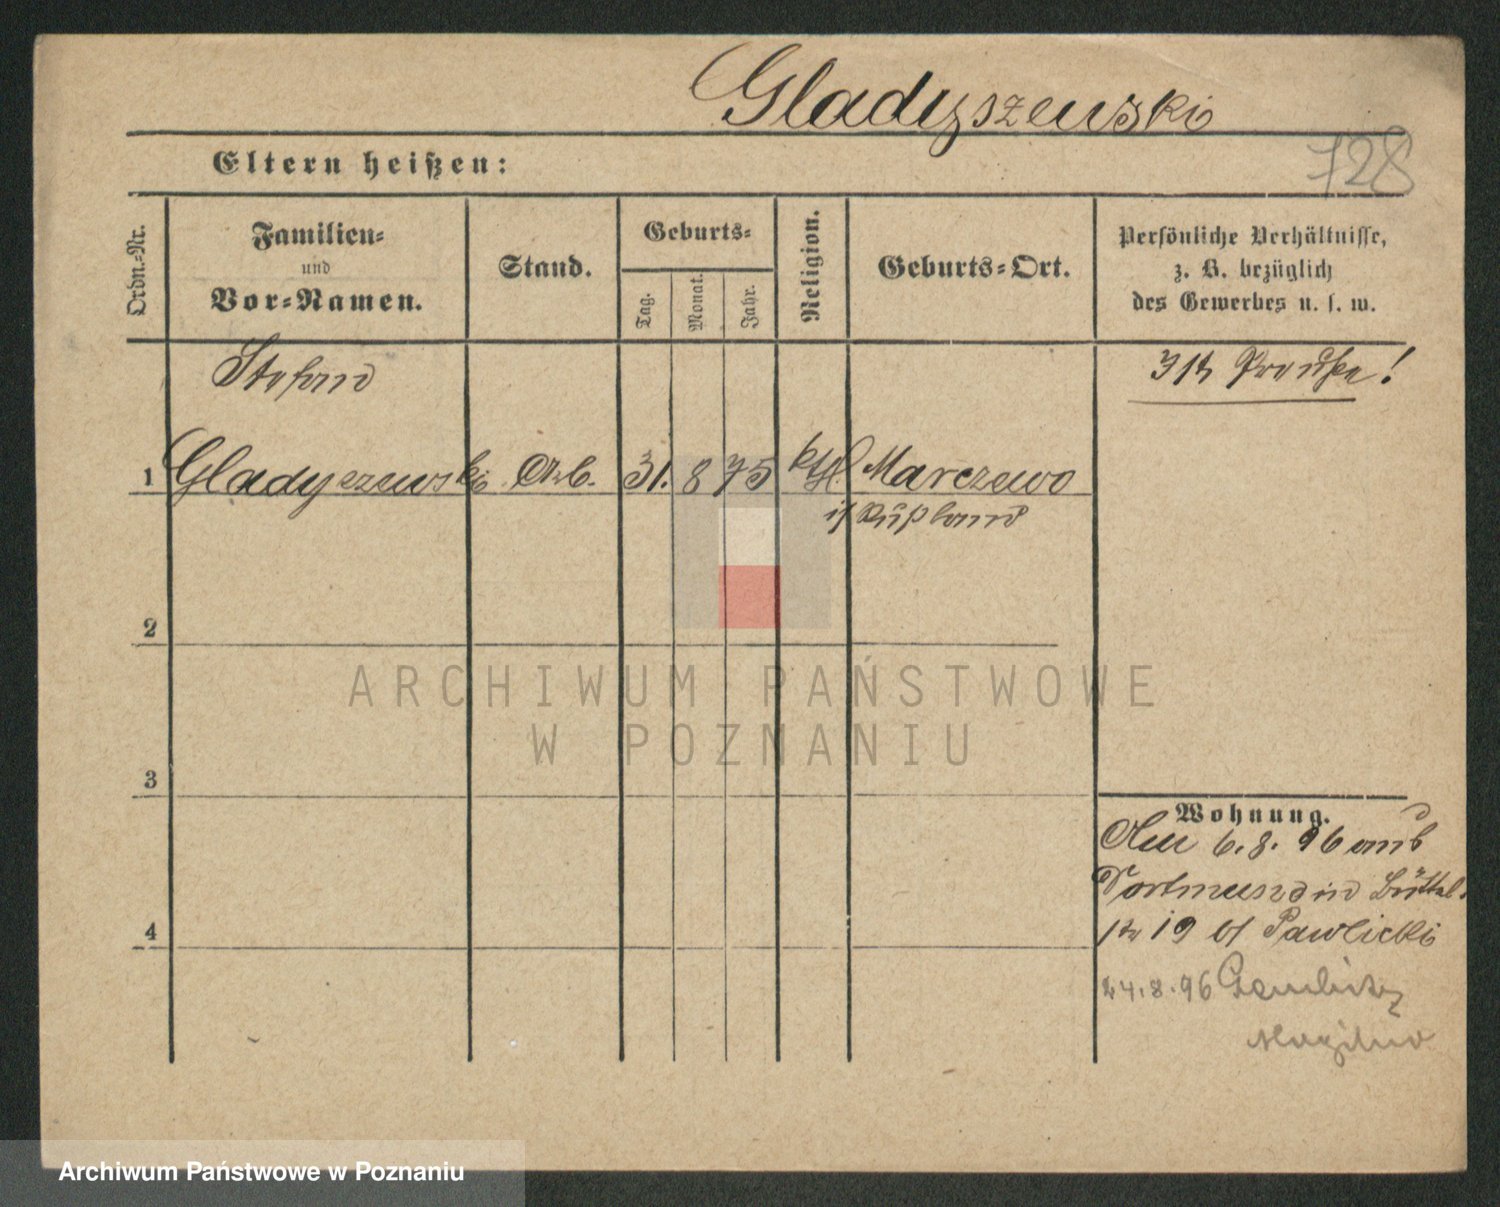 Gladyszewski
728
Eltern heißen:
Ordn.-Nr.
Familien-
und
Vor-Namen.
Stand.
Geburts-
Tag.
Monat.
Jahr.
Religion.
Geburts-Ort.
Persönliche Verhältnisse,
z. B. bezüglich
des Gewerbes u. s. w.
Stefan
ist Preuße!
1 Gladyszewski Arb. 31. 8 75 kth. Marczewo
Rußland
2
ARCHIWUM PAŃSTWOWE
W POZNANIU
3
Wohnung.
6. 8. 96 aus
Dortmund in
19 bei Pawlicki
24.8.96 Gembitz
Mogilno
4
Archiwum Państwowe w Poznaniu